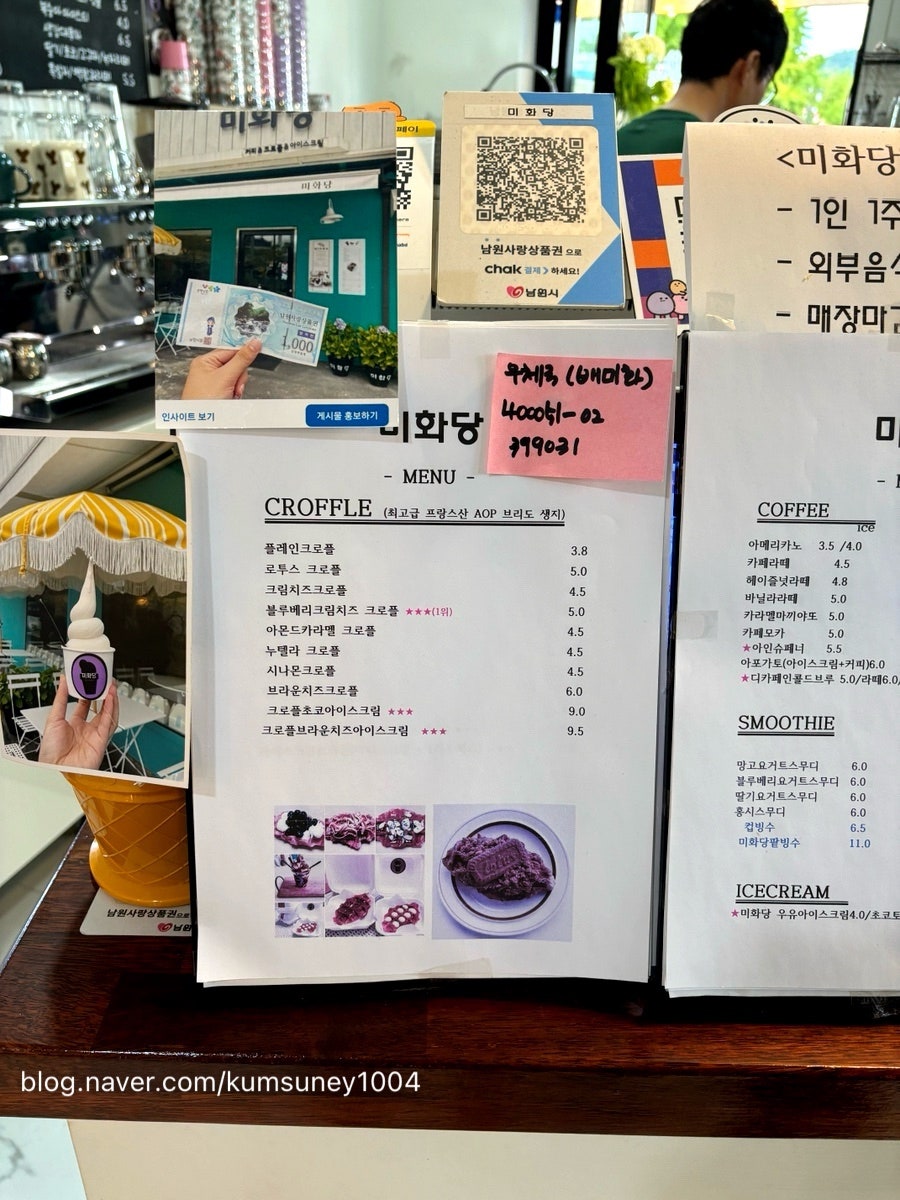 6.5
5.5
미화당
커피&크로플&아이스크림
미화당
1,000
인사이트 보기
게시물 홍보하기
페이
미화당
남원사랑상품권 으로
chak 결제 > 하세요!
남원시
<미화당
- 1인 1주
- 외부음식
- 매장마감
우체국 (배미화)
400051-02
399031
미화당
- MENU -
CROFFLE (최고급 프랑스산 AOP 브리도 생지)
플레인크로플 3.8
로투스 크로플 5.0
크림치즈크로플 4.5
블루베리크림치즈 크로플 ★★★(1위) 5.0
아몬드카라멜 크로플 4.5
누텔라 크로플 4.5
시나몬크로플 4.5
브라운치즈크로플 6.0
크로플초코아이스크림 ★★★ 9.0
크로플브라운치즈아이스크림 ★★★ 9.5
COFFEE
ice
아메리카노 3.5 /4.0
카페라떼 4.5
헤이즐넛라떼 4.8
바닐라라떼 5.0
카라멜마끼야또 5.0
카페모카 5.0
★아인슈페너 5.5
아포가토(아이스크림+커피)6.0
★디카페인콜드브루 5.0/라떼6.0/
SMOOTHIE
망고요거트스무디 6.0
블루베리요거트스무디 6.0
딸기요거트스무디 6.0
홍시스무디 6.0
컵빙수 6.5
미화당팥빙수 11.0
ICECREAM
★미화당 우유아이스크림4.0/초코
미화당
남원사랑상품권으로
blog.naver.com/kumsuney1004